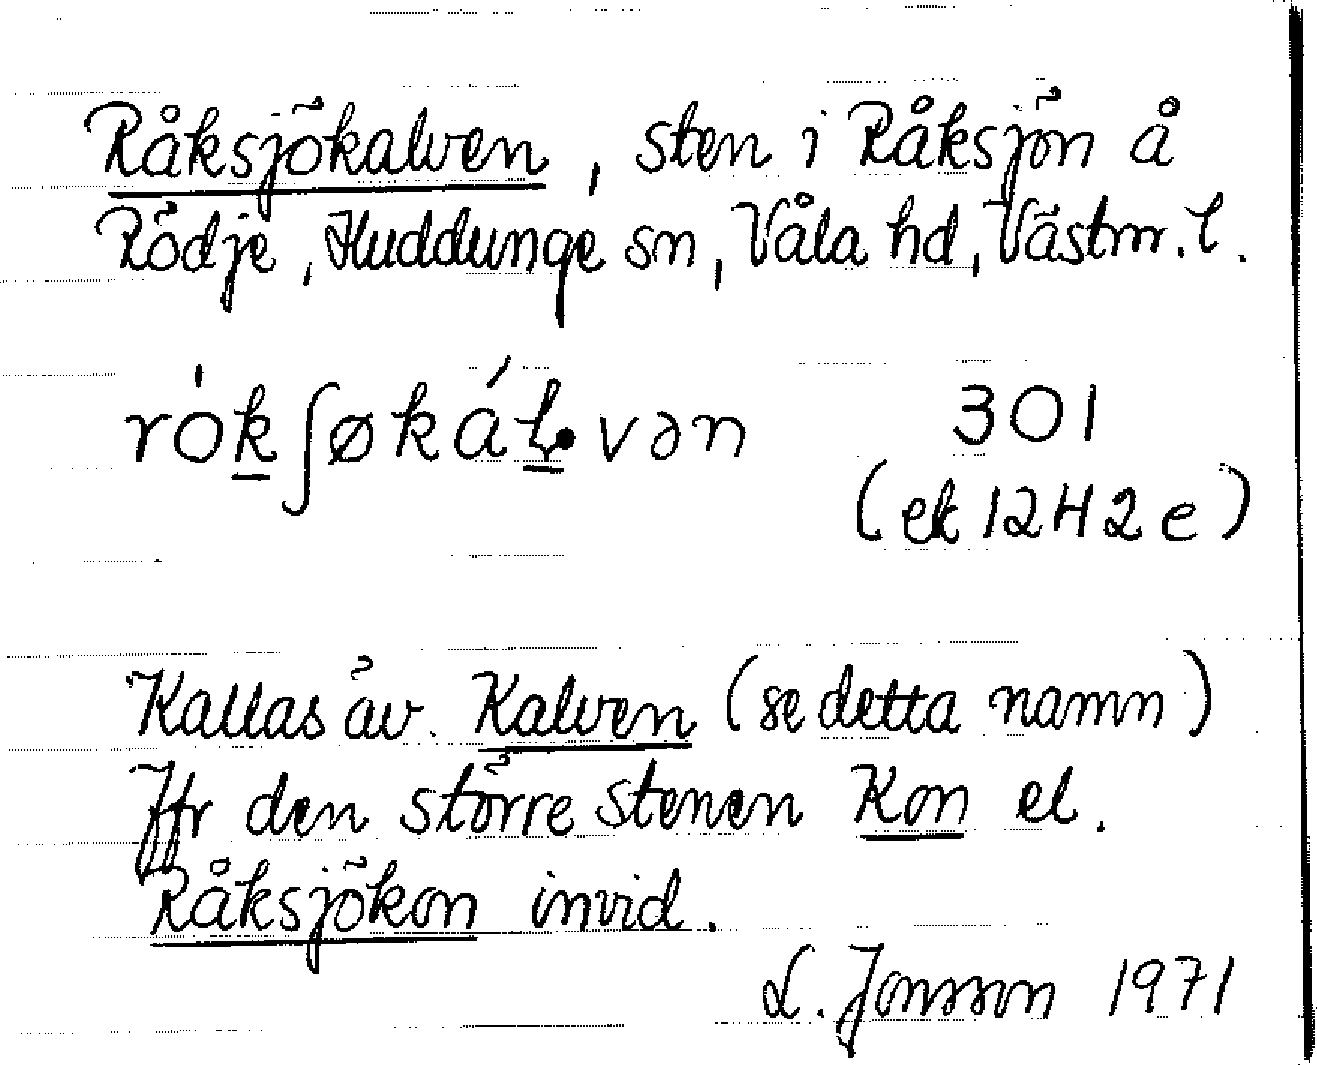 Råksjökalven, sten i Råksjön å
Rödje, Huddunge sn, Våla hd, Västm. l.
rók̲ʃøkáḷ̲vən 301
(ek 12H2e)
Kallas äv. Kalven (se detta namn)
Jfr den större stenen Kon el.
Råksjökon invid.
L. Jonsson 1971